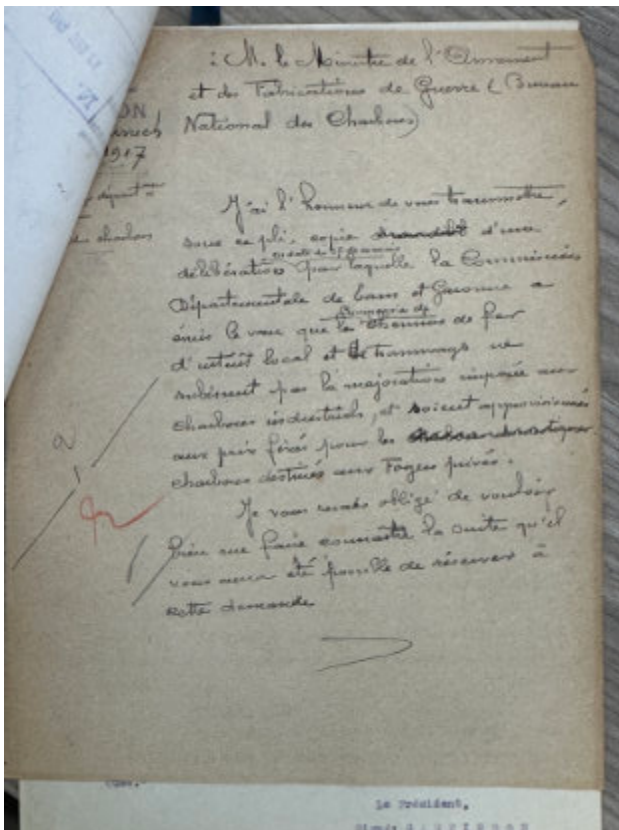 ON
1917
départ
des charbons
à M. le Ministre de l'Armement
et des Fabrications de Guerre (Bureau
National des Charbons)
J'ai l'honneur de vous transmettre,
sous ce pli, copie d'une
en date du 17 Janvier
délibération par laquelle la Commission
Départementale de Tarn et Garonne a
Compagnie de
émis le vœu que les chemins de fer
d'intérêt local et de tramways ne
subissent pas la majoration imposée aux
charbons industriels, et soient approvisionnés
aux prix fixés pour les
charbons destinés aux Foyers privés.
Je vous serais obligé de vouloir
bien me faire connaître la suite qu'il
vous aura été possible de réserver à
cette demande.
Le Président,